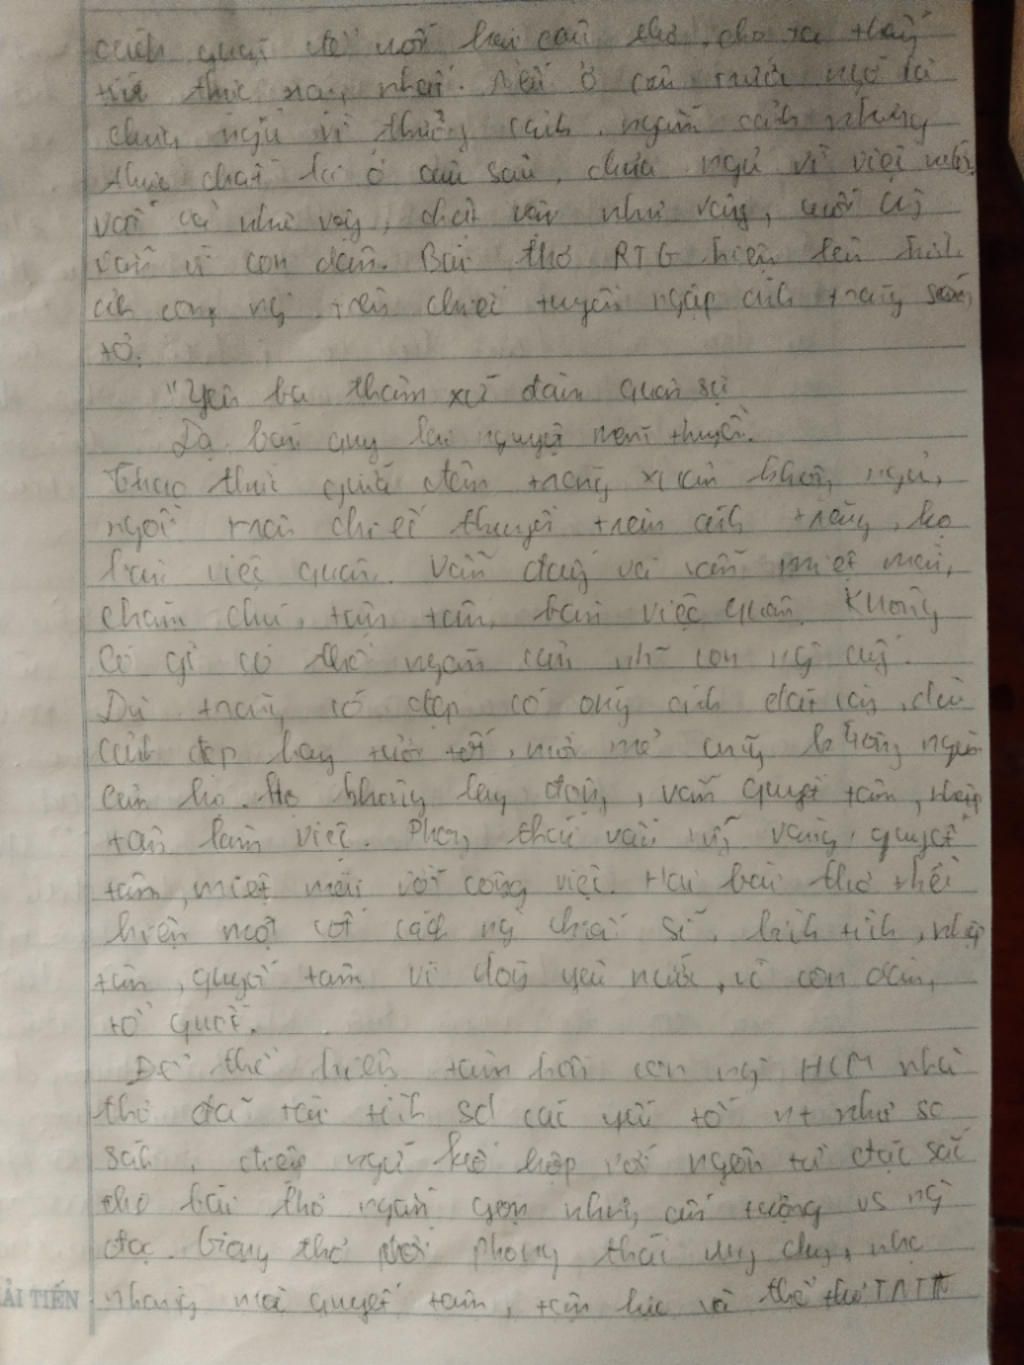 cách quai từ nối hai câu thơ, cho ta thấy
thức nhất. Nếu ở câu trước ngỡ là
chưa ngủ vì thưởng cảnh, ngắm cảnh nhưng
thực chất lại ở câu sau, chưa ngủ vì việc nước,
vẫn như vậy,
vẫn vì con dân. Bài thơ RTG hiện lên hình
ảnh con ng trên chiếc thuyền ngập ánh trăng sáng
tỏ.
"Yên ba thâm xứ đàm quân sự
Dạ bán quy lai nguyệt mãn thuyền.
Thao thức giữa đêm trăng xuân không ngủ,
ngồi trên chiếc thuyền tràn ánh trăng, họ
bàn việc quân. Vẫn đấy và vẫn miệt mài,
chăm chú, tận tâm, bàn việc quân. Không
có gì có thể ngăn cản những con ng ấy.
Dù trăng có đẹp có ánh dát vàng, dù
cảnh đẹp hay tươi tốt, mới mẻ cũng không ngăn
cản họ. Họ không lay động, vẫn quyết tâm, nhập
tâm làm việc. Phong thái vẫn vững vàng, quyết
tâm, miệt mài với công việc. Hai bài thơ thể
hiện một cốt cách ng chiến sĩ, bình tĩnh, nhập
tâm, quyết tâm vì lòng yêu nước, vì con dân,
tổ quốc.
Để thể hiện tâm hồn con ng HCM nhà
thơ đã tài tình sd các yếu tố nt như so
sánh, điệp ngữ kết hợp với ngôn từ đặc sắc
cho bài thơ ngắn gọn nhưng ấn tượng vs ng
đọc. Giọng thơ phong thái ung dung, nhẹ
nhàng mà quyết tâm, tận lực và thể thơ TNTT
ẢI TIẾN